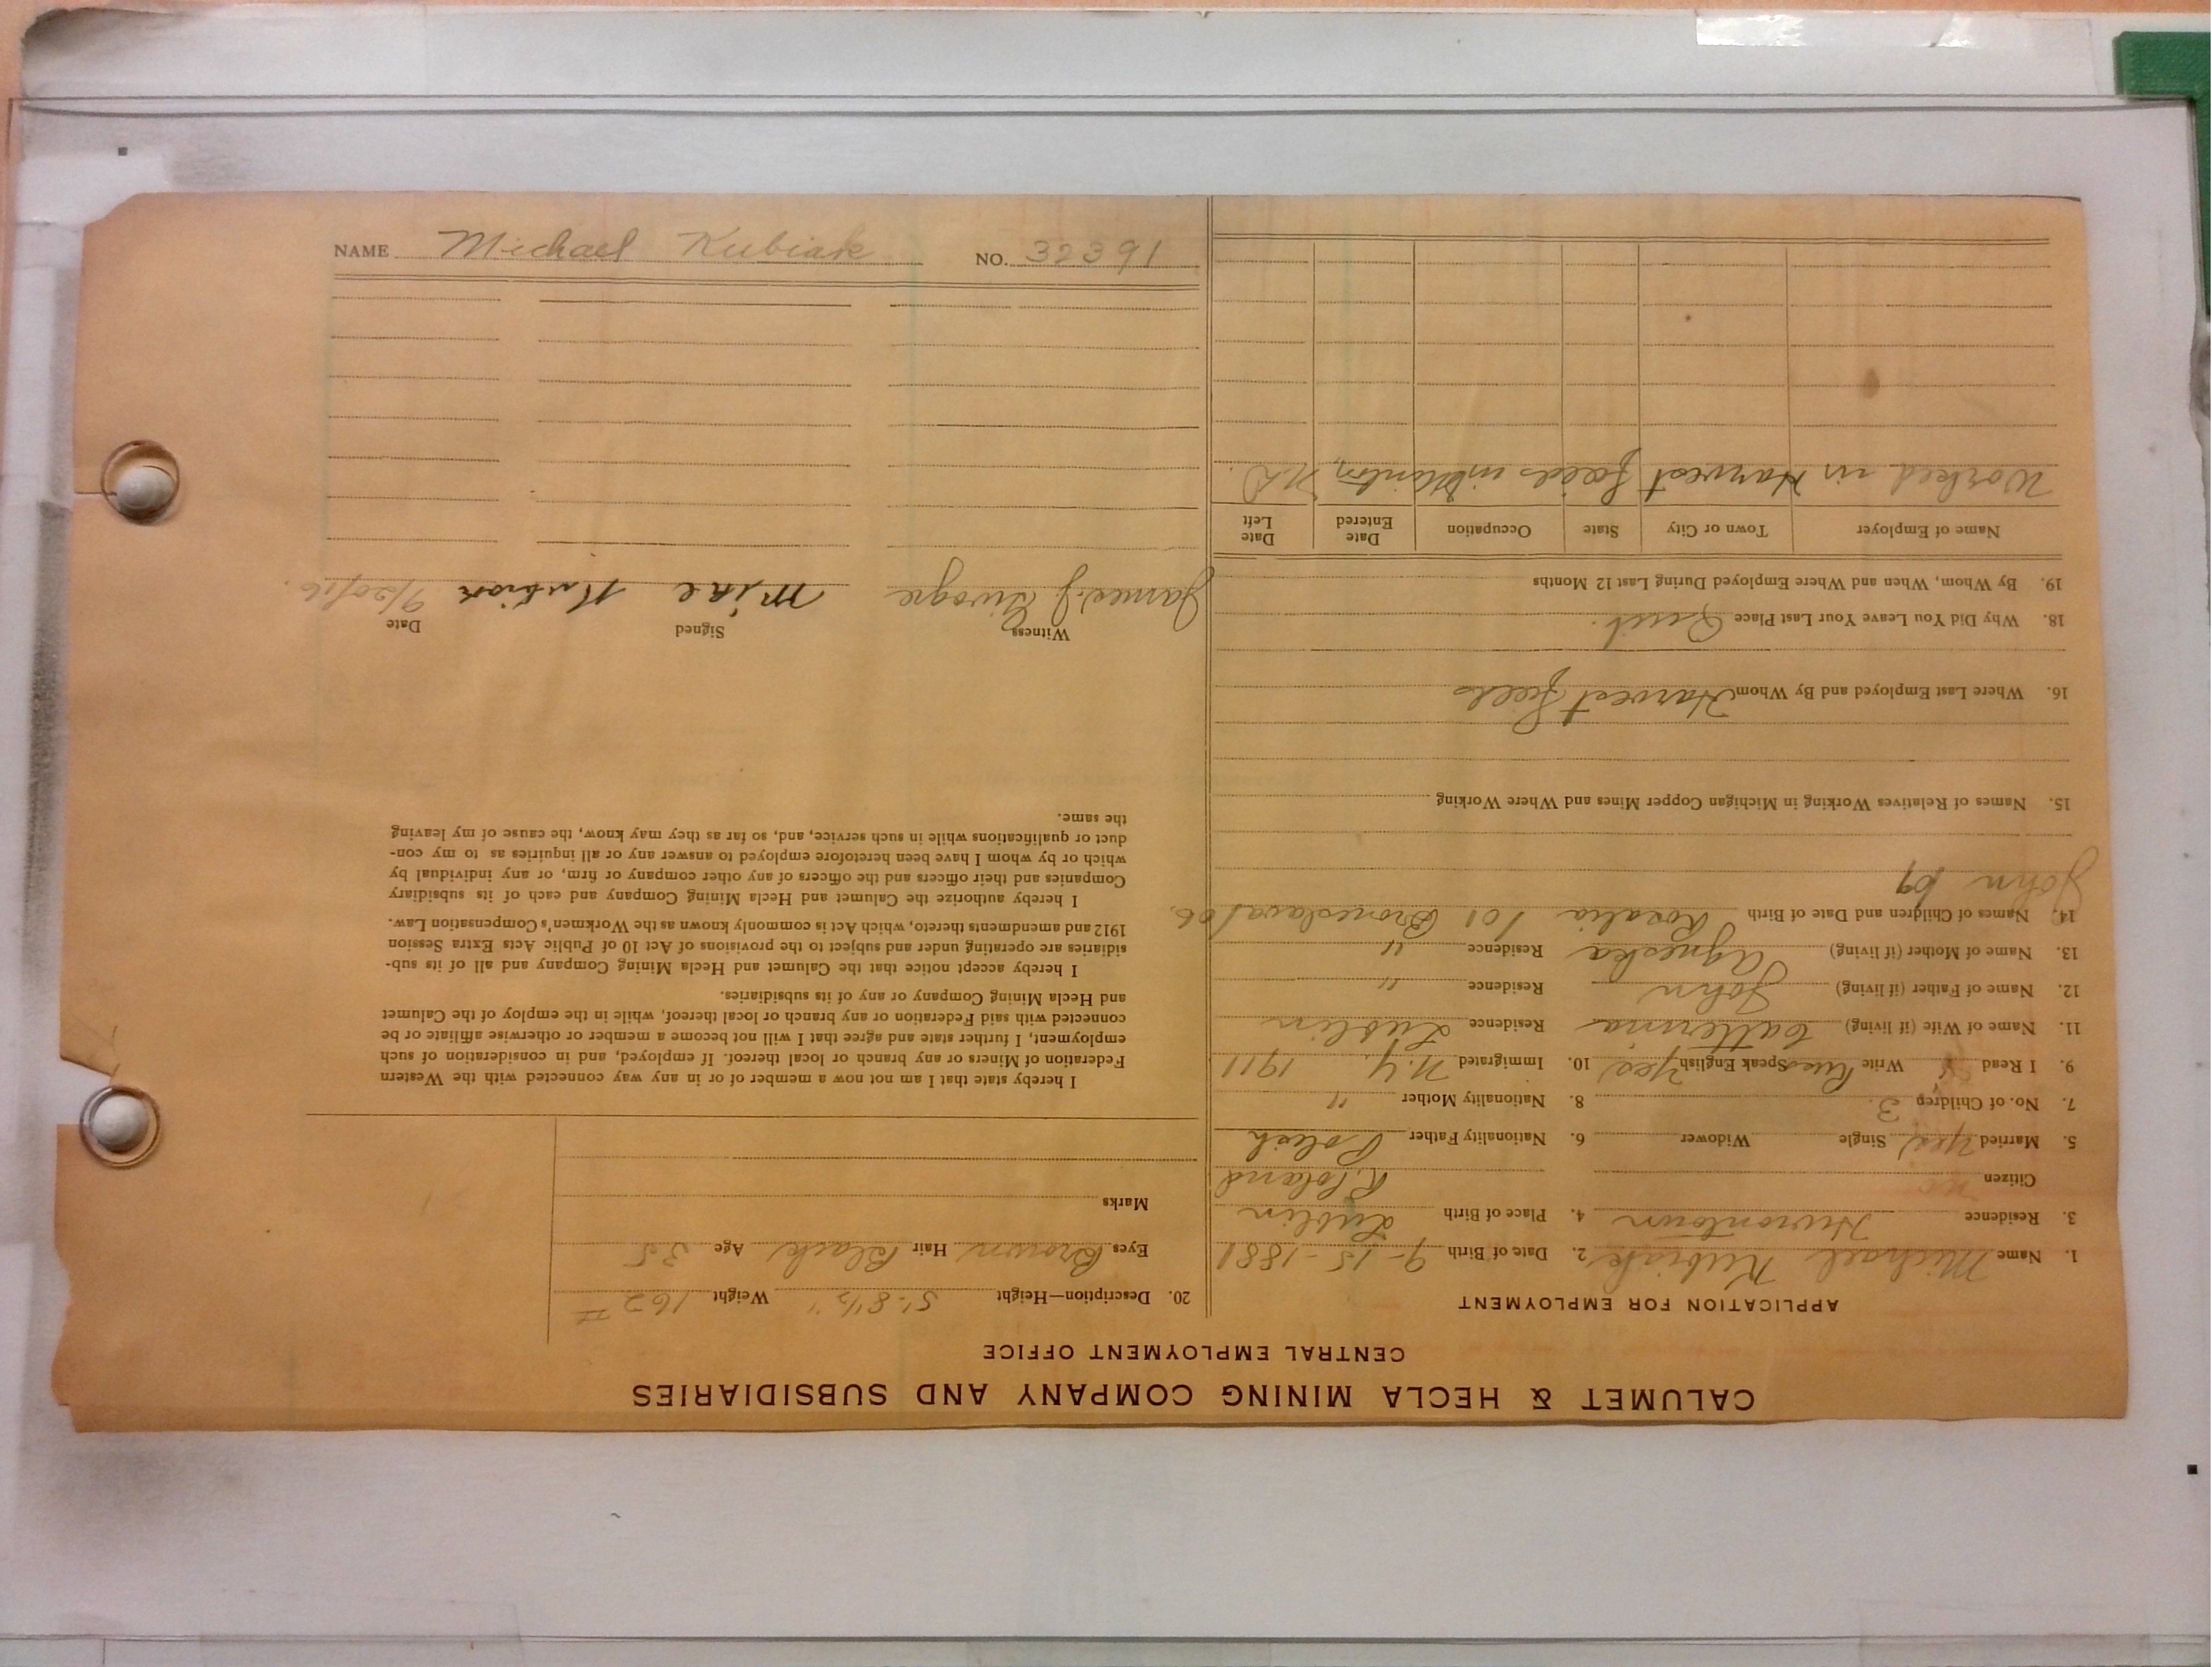 CALUMET & HECLA MINING COMPANY AND SUBSIDIARIES
CENTRAL EMPLOYMENT OFFICE
APPLICATION FOR EMPLOYMENT
1. Name Michael Kubiak 2. Date of Birth 9-15-1881
3. Residence Hurontown 4. Place of Birth Lublin
Citizen no R. Poland
5. Married Yes Single Widower 6. Nationality Father Polish
7. No. of Children 3. 8. Nationality Mother "
9. I Read Write Speak English Yes 10. Immigrated N.Y. 1911
11. Name of Wife (if living) Residence Lublin
12. Name of Father (if living) John Residence "
13. Name of Mother (if living) Agneska Residence "
14. Names of Children and Date of Birth Rosalia 101 Broneslava 106.
John
15. Names of Relatives Working in Michigan Copper Mines and Where Working
16. Where Last Employed and By Whom Harvest
18. Why Did You Leave Your Last Place Quit.
19. By Whom, When and Where Employed During Last 12 Months
Name of Employer Town or City State Occupation Date Entered Date Left
Worked in Harvest in N.D.
20. Description—Height 5'-8½" Weight 162
Eyes Brown Hair Black Age 35
Marks
I hereby state that I am not now a member of or in any way connected with the Western
Federation of Miners or any branch or local thereof. If employed, and in consideration of such
employment, I further state and agree that I will not become a member or otherwise affiliate or be
connected with said Federation or any branch or local thereof, while in the employ of the Calumet
and Hecla Mining Company or any of its subsidiaries.
I hereby accept notice that the Calumet and Hecla Mining Company and all of its sub-
sidiaries are operating under and subject to the provisions of Act 10 of Public Acts Extra Session
1912 and amendments thereto, which Act is commonly known as the Workmen's Compensation Law.
I hereby authorize the Calumet and Hecla Mining Company and each of its subsidiary
Companies and their officers and the officers of any other company or firm, or any individual by
which or by whom I have been heretofore employed to answer any or all inquiries as to my con-
duct or qualifications while in such service, and, so far as they may know, the cause of my leaving
the same.
Witness Signed Date
James J. 9/20/16.
NAME Michael Kubiak NO. 32391